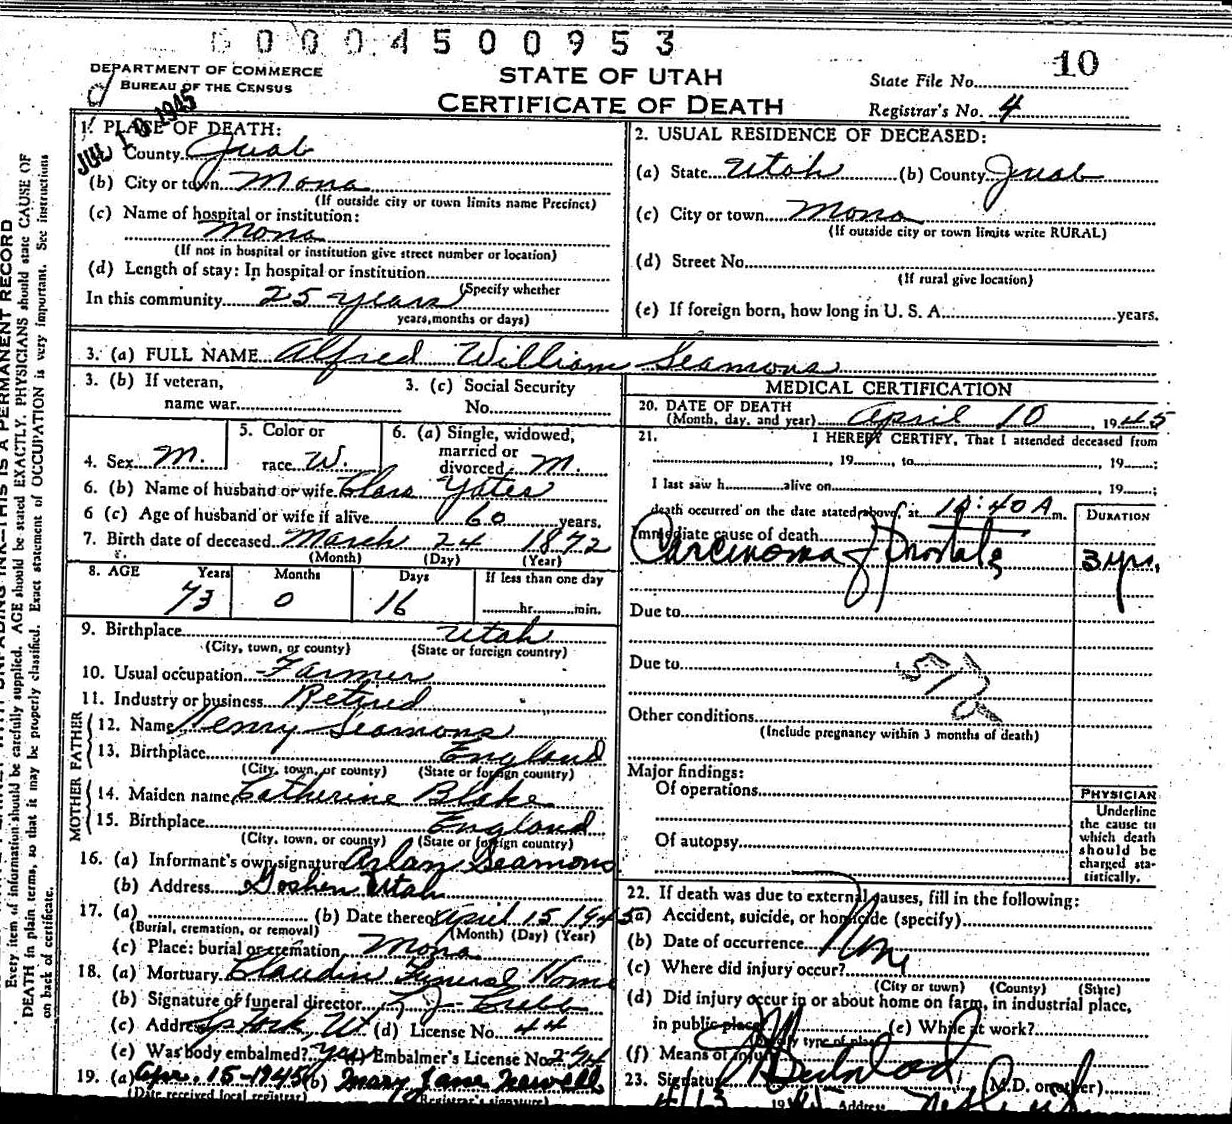 00004500953
DEPARTMENT OF COMMERCE
BUREAU OF THE CENSUS
STATE OF UTAH
CERTIFICATE OF DEATH
State File No. 10
Registrar's No. 4
JUL 10 1945
1. PLACE OF DEATH:
County Juab
(b) City or town Mona
(If outside city or town limits name Precinct)
(c) Name of hospital or institution:
Mona
(If not in hospital or institution give street number or location)
(d) Length of stay: In hospital or institution
(Specify whether
In this community 25 years
years, months or days)
2. USUAL RESIDENCE OF DECEASED:
(a) State Utah (b) County Juab
(c) City or town Mona
(If outside city or town limits write RURAL)
(d) Street No.
(If rural give location)
(e) If foreign born, how long in U. S. A. years.
3. (a) FULL NAME Alfred William Seamons
3. (b) If veteran,
name war
3. (c) Social Security
No.
4. Sex M.
5. Color or
race W.
6. (a) Single, widowed,
married or
divorced M.
6. (b) Name of husband or wife Clara Yates
6 (c) Age of husband or wife if alive 60 years.
7. Birth date of deceased March 24 1872
(Month) (Day) (Year)
8. AGE Years Months Days If less than one day
73 0 16 hr. min.
9. Birthplace Utah
(City, town, or county) (State or foreign country)
10. Usual occupation Farmer
11. Industry or business Retired
FATHER
12. Name Henry Seamons
13. Birthplace England
(City, town, or county) (State or foreign country)
MOTHER
14. Maiden name Catherine Blake
15. Birthplace England
(City, town, or county) (State or foreign country)
16. (a) Informant's own signature Arlan Seamons
(b) Address Goshen Utah
17. (a) (b) Date thereof April 15 1945
(Burial, cremation, or removal) (Month) (Day) (Year)
(c) Place: burial or cremation Mona
18. (a) Mortuary Claudin Funeral Home
(b) Signature of funeral director
(c) Address Sp Fork Ut (d) License No. 44
(e) Was body embalmed? Yes Embalmer's License No. 274
19. (a) Apr. 15-1945 (b) Mary Jane Newell
(Date received local registrar) (Registrar's signature)
MEDICAL CERTIFICATION
20. DATE OF DEATH
(Month, day, and year) April 10, 1945
21. I HEREBY CERTIFY, That I attended deceased from
, 19 , to , 19 ;
I last saw h alive on , 19 ;
death occurred on the date stated above, at 10:40 A m.
DURATION
Immediate cause of death
Carcinoma of prostate 3 yrs.
Due to
Due to
Other conditions
(Include pregnancy within 3 months of death)
Major findings:
Of operations
Of autopsy
PHYSICIAN
Underline
the cause to
which death
should be
charged sta-
tistically.
22. If death was due to external causes, fill in the following:
(a) Accident, suicide, or homicide (specify)
(b) Date of occurrence None
(c) Where did injury occur?
(City or town) (County) (State)
(d) Did injury occur in or about home on farm, in industrial place,
in public place? (e) While at work?
(Specify type of place)
(f) Means of injury
23. Signature (M.D. or other)
4/13 1945 Address
THIS IS A PERMANENT RECORD
Every item of information should be carefully supplied. AGE should be stated EXACTLY. PHYSICIANS should state CAUSE OF
DEATH in plain terms, so that it may be properly classified. Exact statement of OCCUPATION is very important. See instructions
on back of certificate.